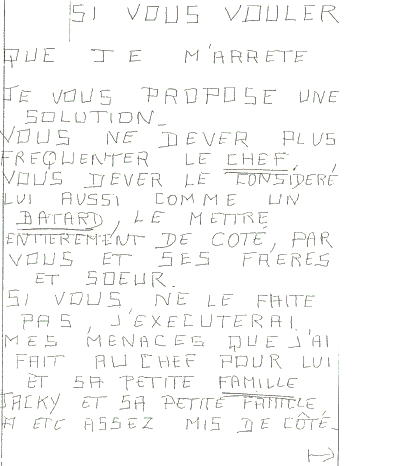 SI VOUS VOULER
QUE JE M'ARRETE
JE VOUS PROPOSE UNE
SOLUTION_
VOUS NE DEVER PLUS
FREQUENTER LE CHEF,
VOUS DEVER LE CONSIDERÉ
LUI AUSSI COMME UN
BATARD, LE METTRE
ENTIEREMENT DE COTÉ, PAR
VOUS ET SES FRERES
ET SOEUR.
SI VOUS NE LE FAITE
PAS, J'EXECUTERAI
MES MENACES QUE J'AI
FAIT AU CHEF POUR LUI
ET SA PETITE FAMILLE
JACKY ET SA PETITE FAMILLE
A ETE ASSEZ MIS DE CÔTÉ_